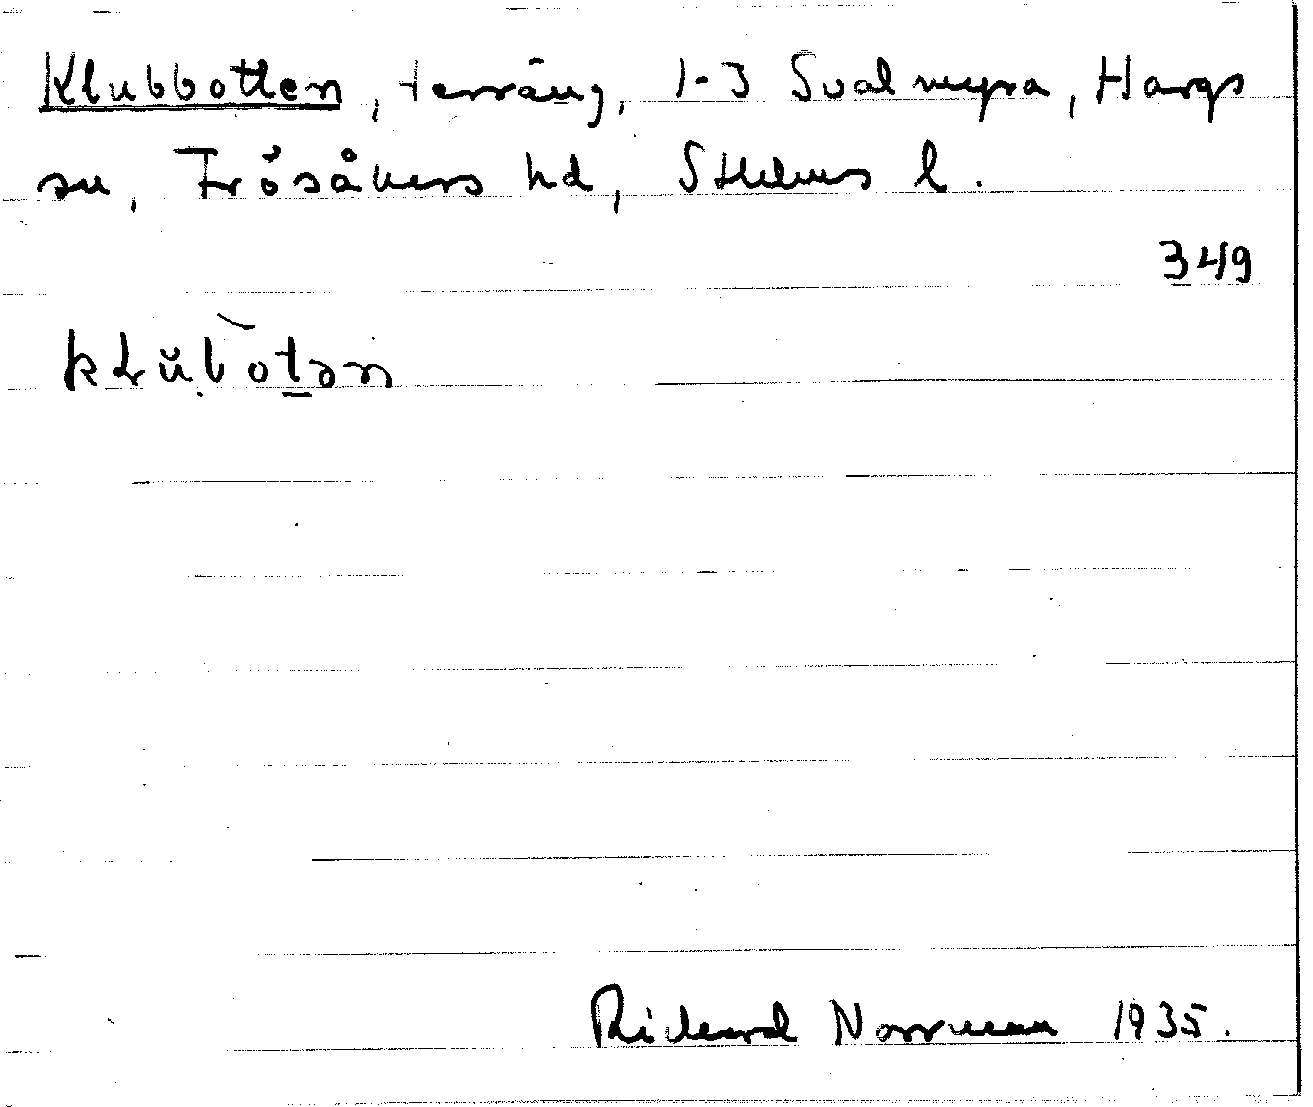 Klubbotten, terräng, 1-3 Svalmyra, Hargs
sn, Frösåkers hd, Sthlms l.
349
Rickard Norrman 1935.